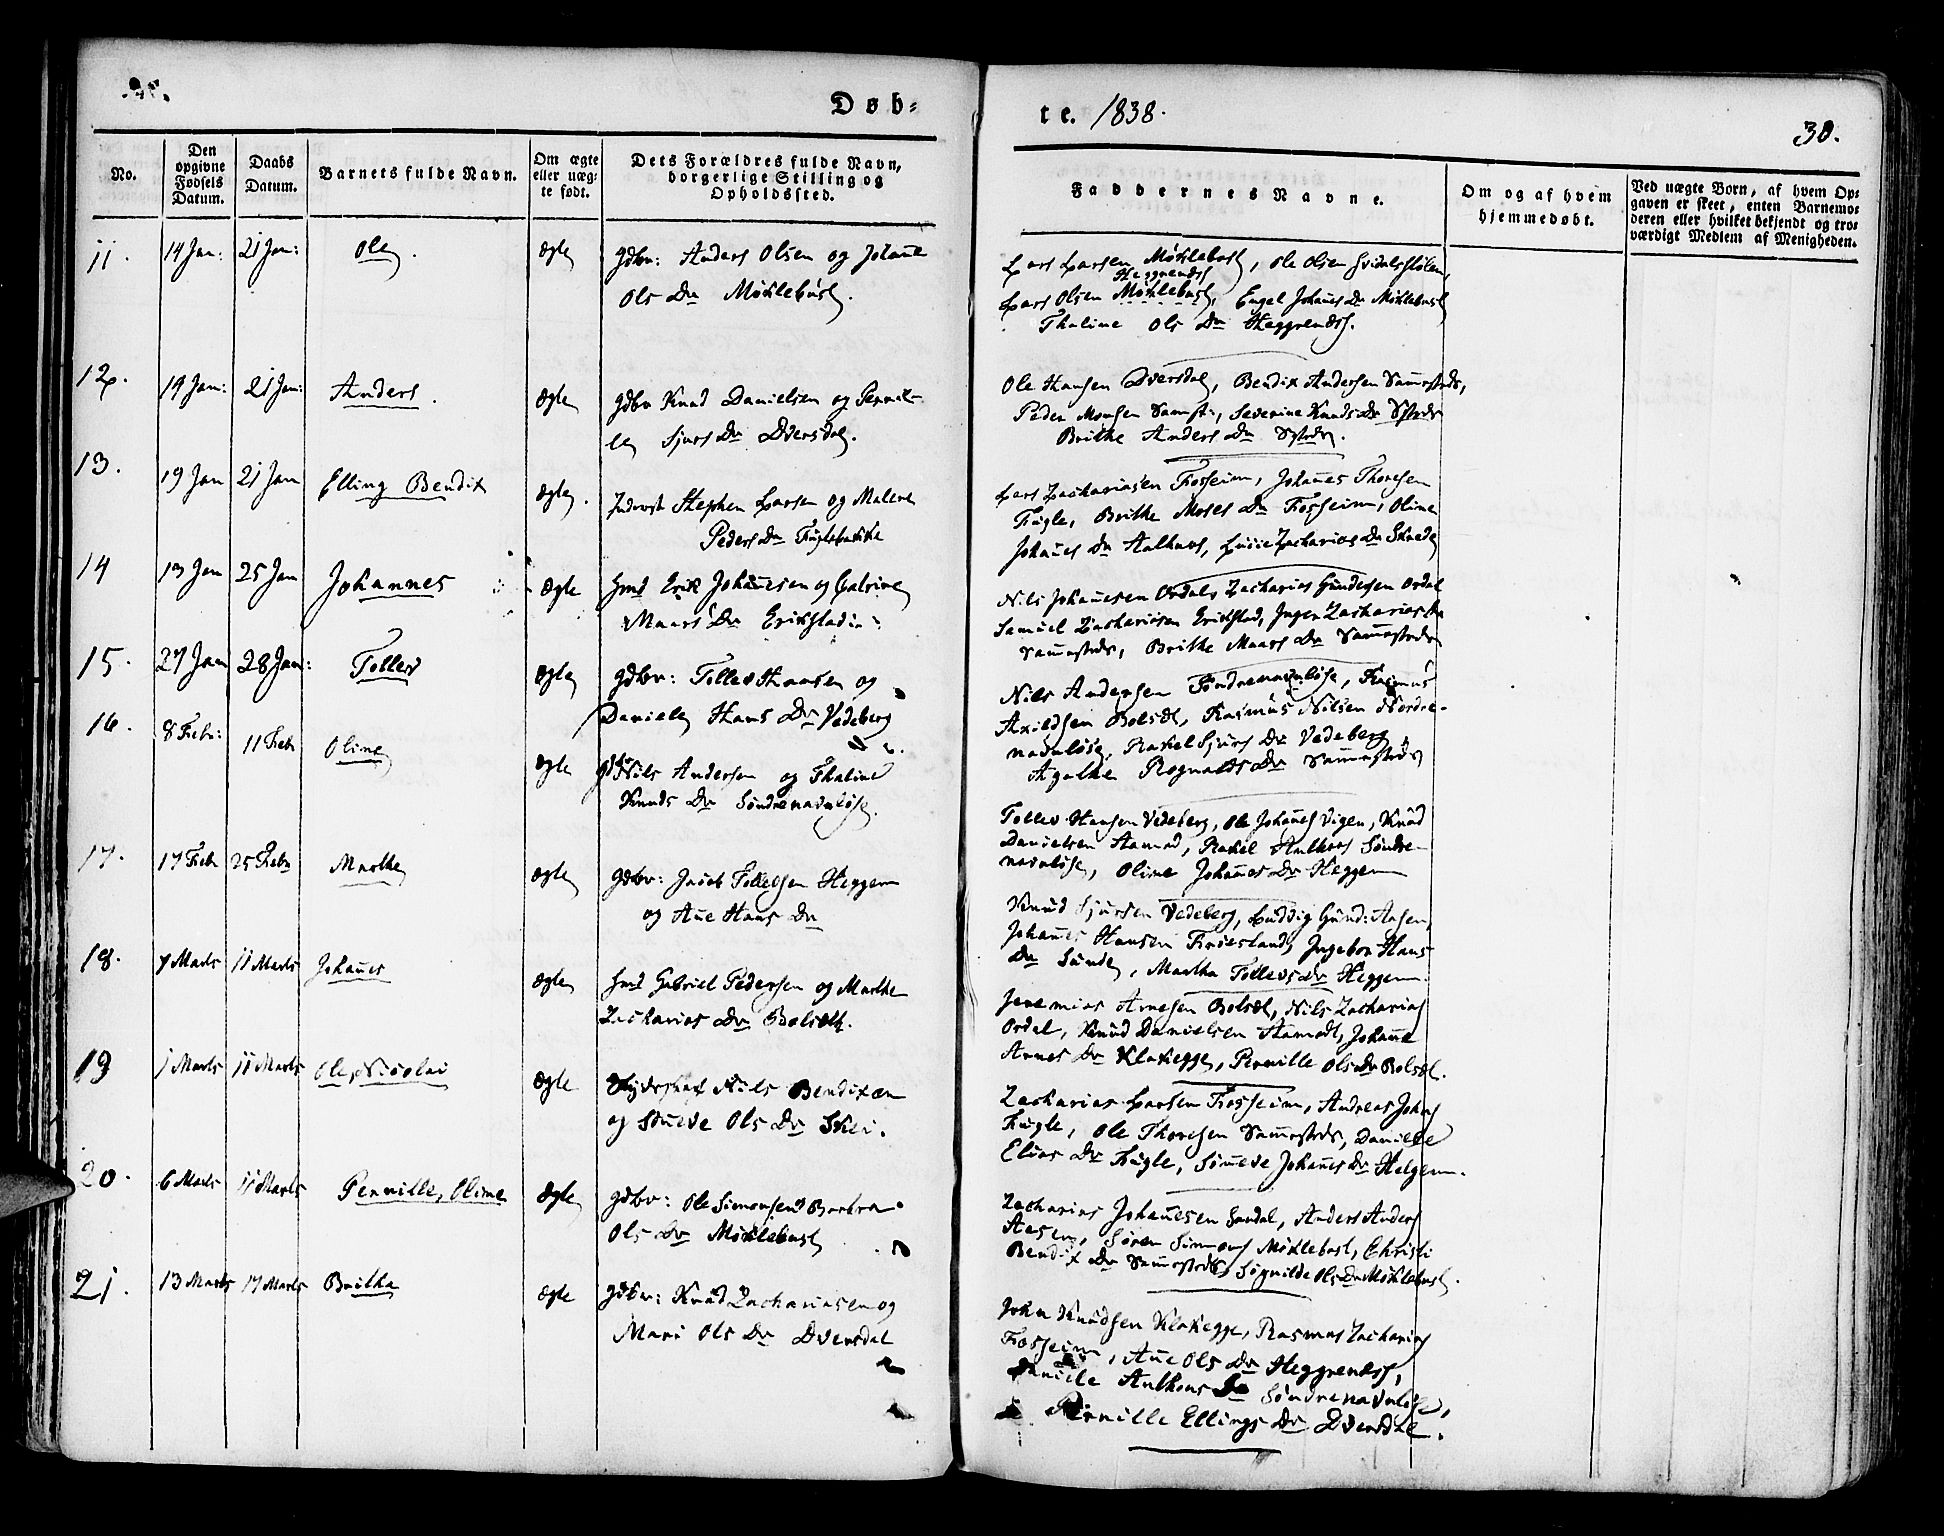 Døb-
te. 1838.
30.
No.
Den opgivne Fødsels Datum.
Daabs Datum.
Barnets fulde Navn.
Om ægte eller uægte født.
Dets Forældres fulde Navn, borgerlige Stilling og Opholdssted.
Faddernes Navne.
Om og af hvem hjemmedøbt.
Ved uægte Børn, af hvem Opgaven er skeet, enten Barnemoderen eller hvilket bekjendt og troværdigt Medlem af Menigheden.
11. 14 Jan: 21 Jan: Ole. Ægte Gdbr: Anders Olsen og Johanne
Ols Dr Møklebust.
Lars Larsen Møklebust, Ole Olsen
Heggrenæs
Lars Olsen Møklebust, Engel Johanes Dr Møklebust
Thaline Ols Dr Heggrenæs.
12. 19 Jan: 21 Jan: Anders. Ægte Gdbr Knud Danielsen og Pernil-
le Sjurs Dr Dversdal.
Ole Hansen Dversdal, Bendix Andersen Sammesteds,
Peder Monsen Samst:, Severine Knuds Dr Systeds
Brithe Anders Dr Systeds.
13. 19 Jan 21 Jan Elling Bendix Ægte. Inderst Stephen Larsen og Malene
Peders Dr Fuglebakke
Lars Zachariasen Fosseim, Johanes Thoresen
Fugle, Brithe Moses Dr Fosseim, Oline
Johanes Dr Aalhuus, Lucie Zacharias Dr
14 13 Jan 25 Jan Johannes Ægte Hmd Erik Johanesen og Catrine
Maars Dr Erikstad
Nils Johanesen Ordal, Zacharias Gundersen Ordal
Samuel Zachariasen Erikstad, Inger Zacharias Dr
Sammesteds, Brithe Maars Dr Sammesteds
15. 27 Jan 28 Jan: Tollev Ægte Gdbr: Tollev Hansen og
Daniele Hans Dr Vedeberg
Nils Andersen Søndrenavnløse, Rasmus
Axildsen Bolsæt, Rasmus Nilsen Nordre-
navnløse, Rakel Sjurs Dr Vedeberg
Agathe Rognalds Dr Sammesteds
16. 8 Febr: 11 Febr Oline Ægte Gdbr Nils Andersen og Thaline
Knuds Dr Søndrenavnløse.
Tollev Hansen Vedeberg, Ole Johanes Vigen, Knud
Danielsen Aamod, Rakel Anthons Søndre-
navnløse, Oline Johanes Dr Heggem
17. 17 Febr 25 Febr Marthe Ægte Gdbr: Jacob Tollefsen Heggem
og Ane Hans Dr
Knud Sjursen Vedeberg, Ludvig Gund: Aasen,
Johanes Hansen Fiøesland, Ingebor Hans
Dr Sunde, Martha Tollevs Dr Heggem
18. 7 Marts 11 Marts Johanes Ægte Hmd Gabriel Pedersen og Marthe
Zacharias Dr Bolsæth.
Jeremias Arnesen Bolsæt, Nils Zacharias
Ordal, Knud Danielsen Aamodt, Johanne
Arnes Dr Klakegge, Pernille Ols Dr Bolsæt.
19 1 Marts 11 Marts Ole Nicolai Ægte Nils Bendixen
og Synneve Ols Dr Skei.
Zacharias Larsen Fosseim, Andreas Johns
Fugle, Ole Thoresen Sammesteds, Danielle
Elias Dr Fugle, Sønneve Johanes Dr Helgem.
20. 6 Marts 11 Marts Pernille, Oline Ægte Gdbr: Ole Simonsen Barbra
Ols Dr Møklebust
Zacharias Johanesen Sandal, Anders Anders
Aasen, Søren Simons Møklebust, Christi
Bendix Dr Sammesteds, Signilde Ols Dr Møklebust.
21. 13 Marts 17 Marts Britha Ægte Gdbr: Knud Zachariasen og
Mari Ols Dr Dversdal
John Knudsen Klakegge, Rasmus Zacharias
Fosseim, Ane Ols Dr Heggrenæs,
Daniele Anthons Dr Søndrenavnløse,
Pernille Ellings Dr Dversdal.